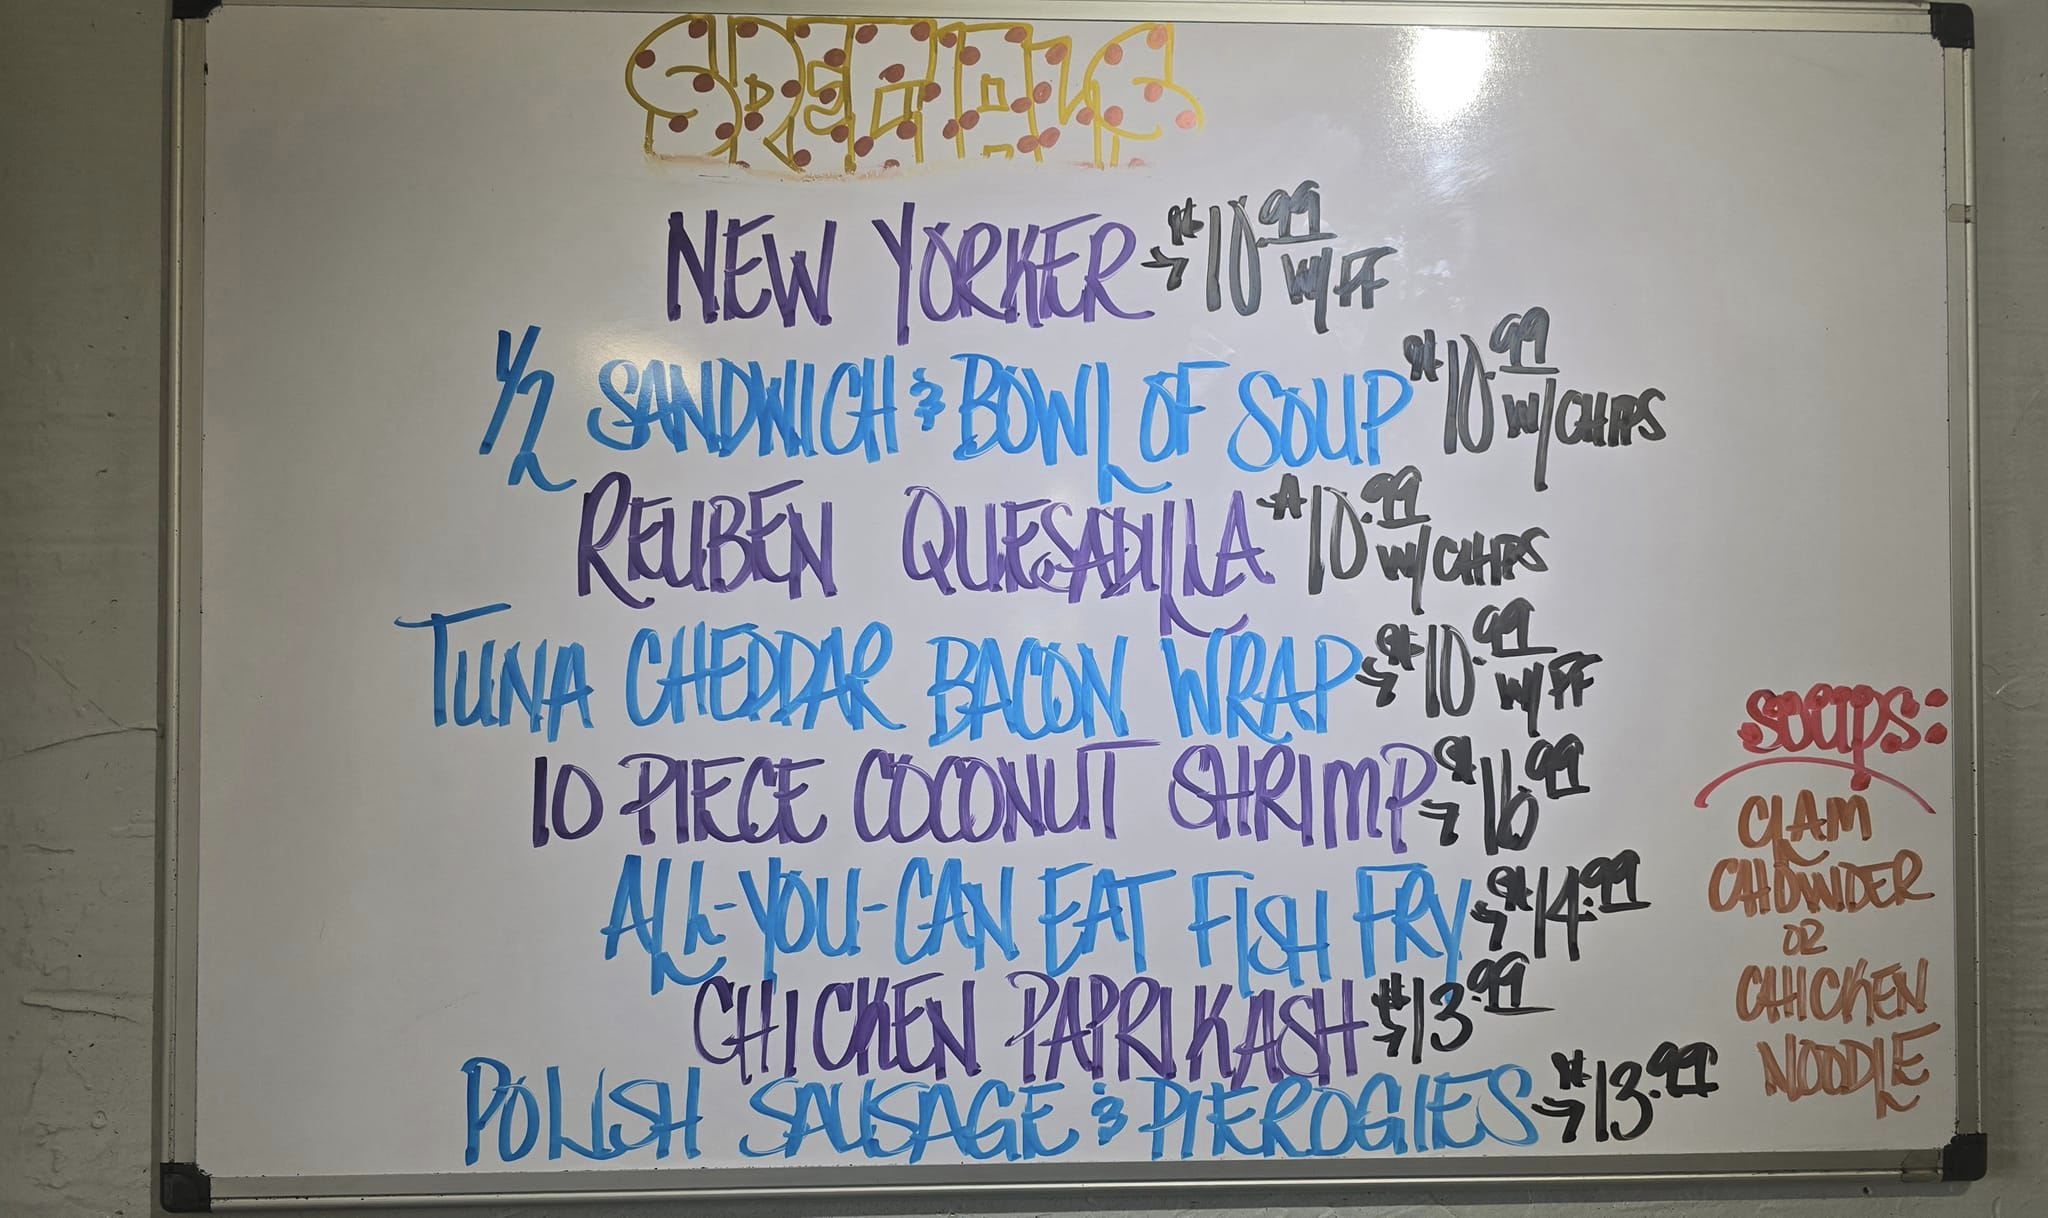 SPECIALS
NEW YORKER → $10.99 W/FF
1/2 SANDWICH & BOWL OF SOUP $10.99 W/CHIPS
REUBEN QUESADILLA $10.99 W/CHIPS
TUNA CHEDDAR BACON WRAP → $10.99 W/FF
10 PIECE COCONUT SHRIMP → $16.99
ALL-YOU-CAN EAT FISH FRY → $14.99
CHICKEN PAPRIKASH → $13.99
POLISH SAUSAGE & PIEROGIES → $13.99
SOUPS:
CLAM
CHOWDER
OR
CHICKEN
NOODLE